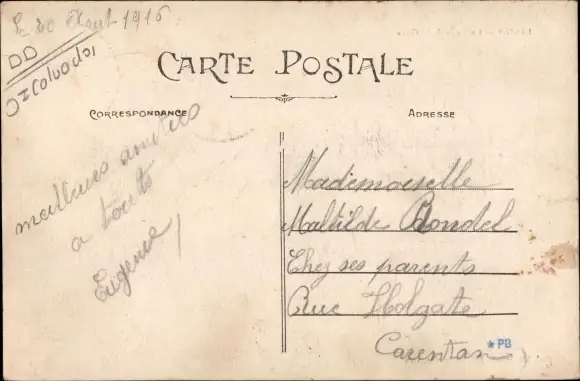 Le 30 Aout 1916
CARTE POSTALE
CORRESPONDANCE
ADRESSE
meilleures amitiés
a touts
Eugenie
Mademoiselle
Maltilde Blondel
Chez ses parents
Rue Holgate
Carentan
PB